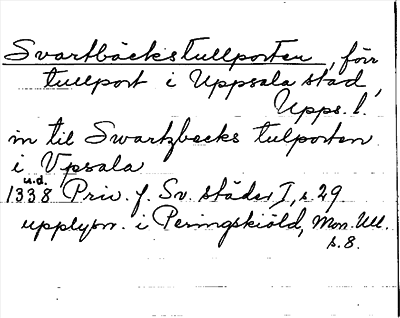 Svartbäckstullporten, förr
tullport i Uppsala stad,
Upps. l.
in til Swartzbecks tulporten
i Vpsala
u.d.
1338 Priv. f. Sv. städer I, s. 29.
upplysn. i Peringskiöld, Mon. Ull.
s. 8.